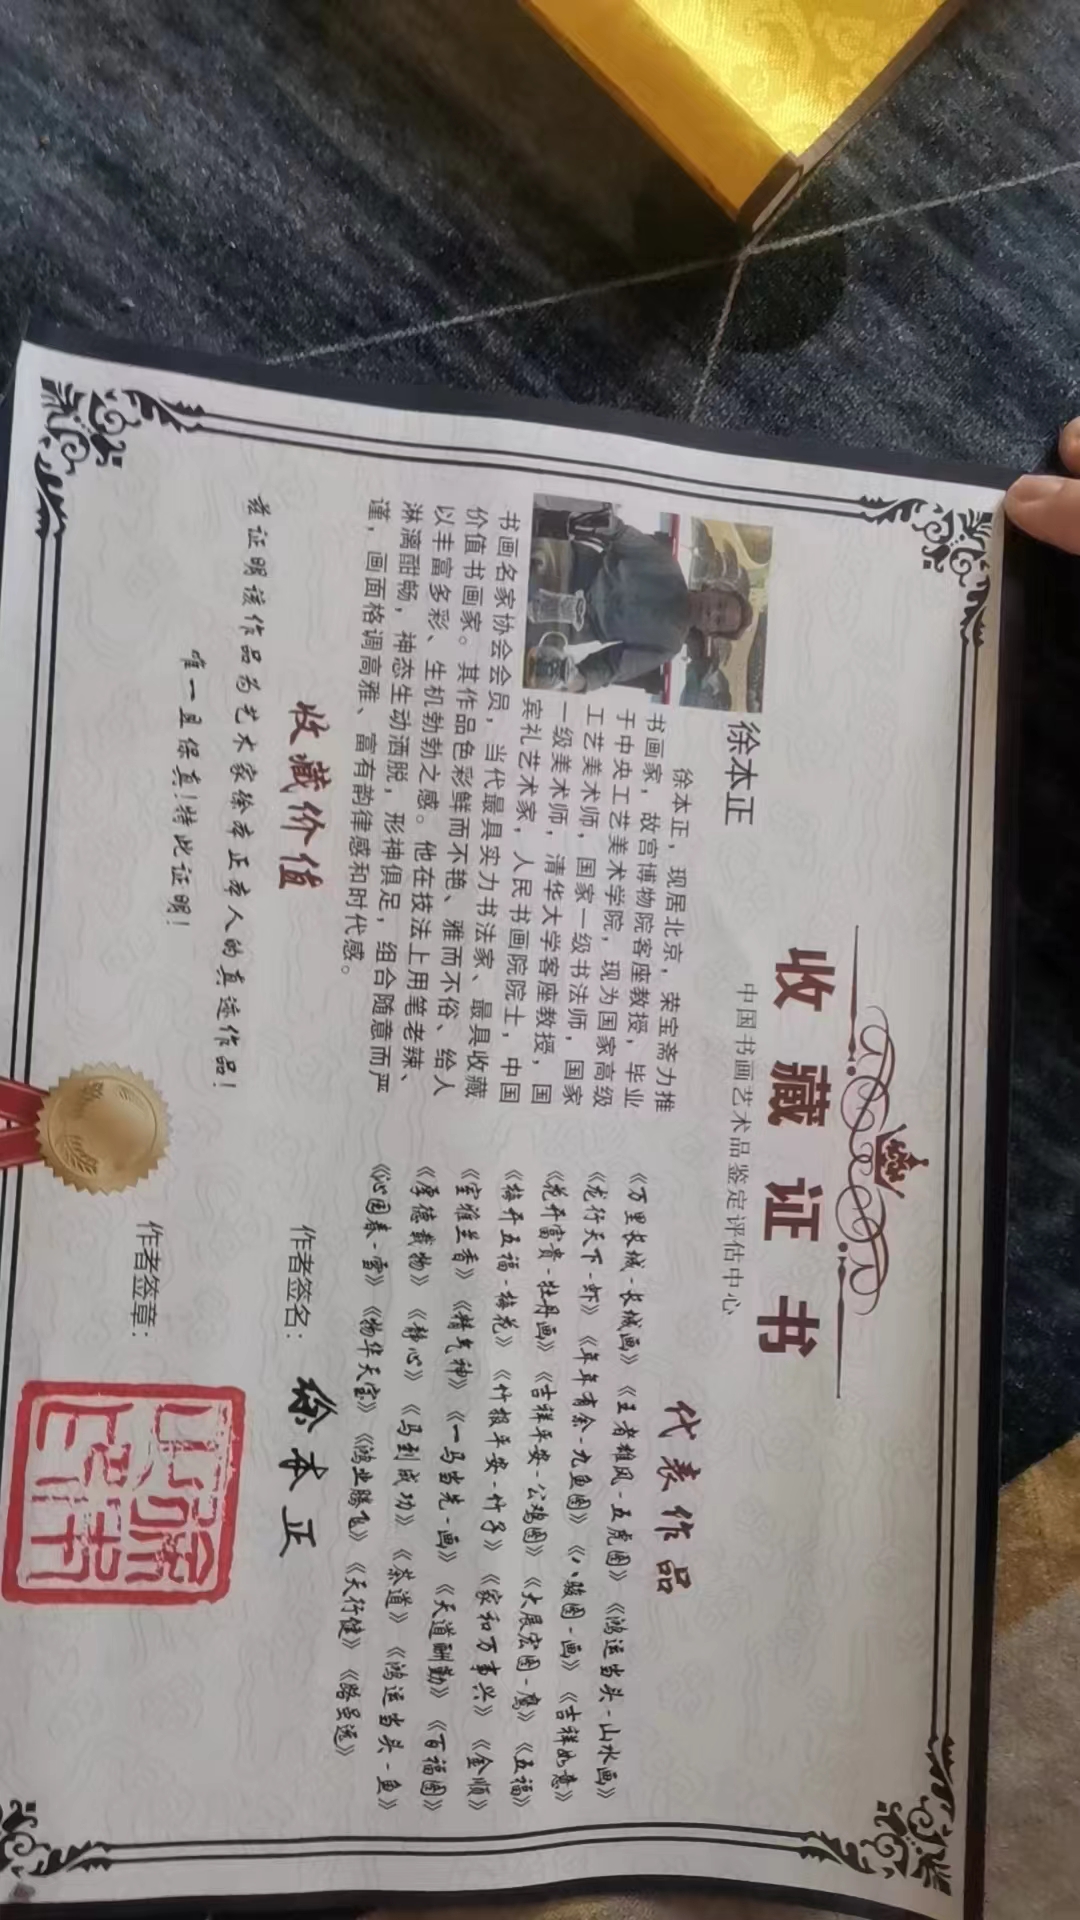 收藏证书
中国书画艺术品鉴定评估中心
徐本正
徐本正，现居北京，荣宝斋力推
书画家，故宫博物院客座教授，毕业
于中央工艺美术学院，现为国家高级
工艺美术师，国家一级书法师，国家
一级美术师，清华大学客座教授，国
宾礼艺术家，人民书画院院士，中国
书画名家协会会员，当代最具实力书法家、最具收藏
价值书画家。其作品色彩鲜而不艳、雅而不俗、给人
以丰富多彩、生机勃勃之感。他在技法上用笔老辣、
淋漓酣畅，神态生动洒脱，形神俱足，组合随意而严
谨，画面格调高雅、富有韵律感和时代感。
收藏价值
兹证明该作品为艺术家徐本正本人的真迹作品！
唯一且保真！特此证明！
代表作品
《万里长城-长城画》《王者雄风-五虎图》《鸿运当头-山水画》
《龙行天下-虾》《年年有余-九鱼图》《八骏图-画》《吉祥如意》
《花开富贵-牡丹画》《吉祥平安-公鸡图》《大展宏图-鹰》《五福》
《梅开五福-梅花》《竹报平安-竹子》《家和万事兴》《金顺》
《室雅兰香》《精气神》《一马当先-画》《天道酬勤》《百福图》
《厚德载物》《静心》《马到成功》《茶道》《鸿运当头-鱼》
《沁园春-雪》《物华天宝》《鸿业腾飞》《天行健》《路虽远》
作者签名：徐本正
作者签章：